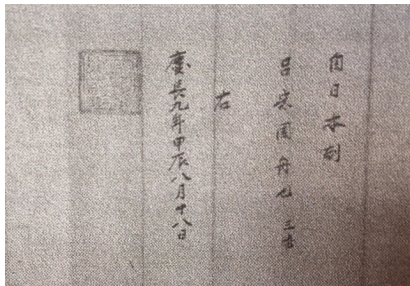 自日本到
呂宋国舟也
右
慶長九年甲辰八月十八日